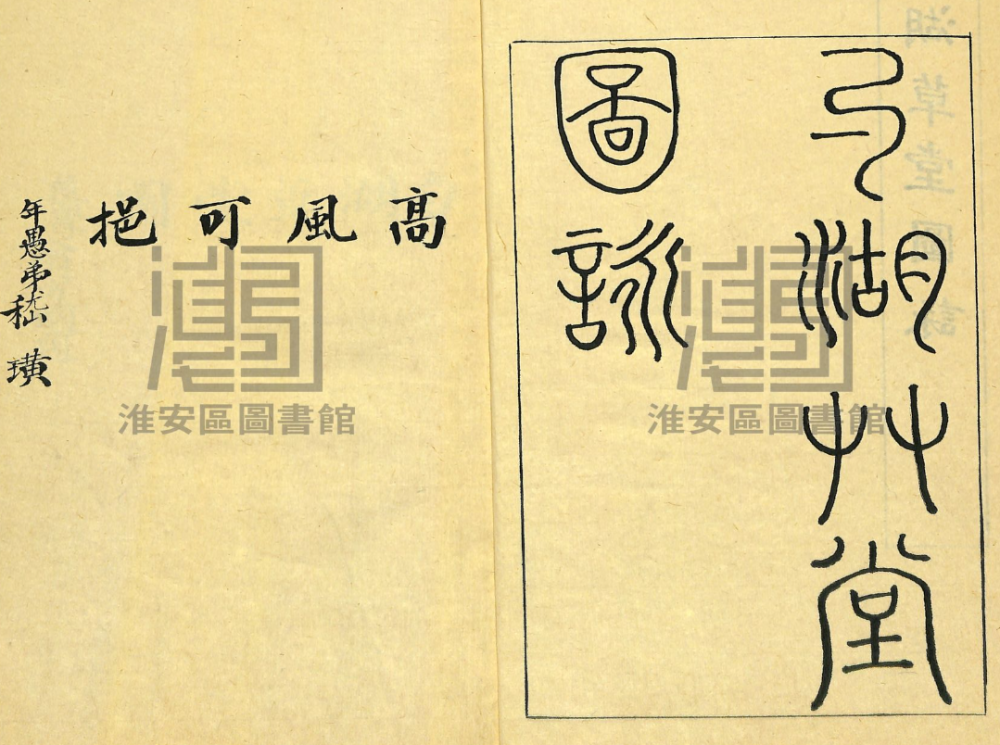 勺湖艸堂
圖詠
髙風可挹
年愚弟嵇璜
淮安區圖書館
淮安區圖書館